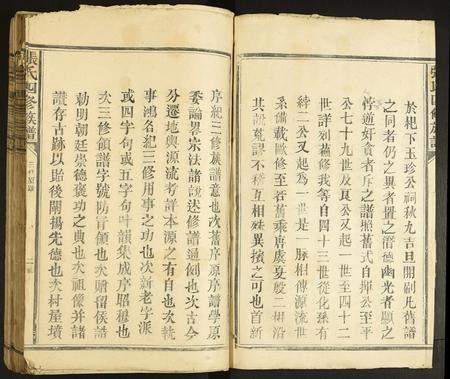 於杞下玉珍公祠秋九吉旦開副凡舊譜
之同者仍之異者置之潛德幽光者顯之
悖道奸貪者斥之譜照舊式自揮公至平
公七十九世及良公又起一世至四十二
世詳列舊修我等自四十三世從化孫有
綍二公又起為一世一世是一脉相傳源流世
系備載歐修至若舊乘唐虞夏殷二
其訛荒謬不稽互相殊異擯之可也首新
序紀三修族譜意也次舊序原序譜學原
委論畧宗法諸說述修譜通例也次古今
分遷地輿源流考詳本源之有自也次執
事鴻名紀三修用事之功也次新老字派
或四字句或五字句叶韻集成序昭穆也
次三修領譜字號防冒領也次贈留侯誥
勅明朝廷崇德褒功之典也次祖像并諸
讚存古跡以貽後閘揚先德也次村屋墳
張氏四修族譜
三修原
張氏四修族譜